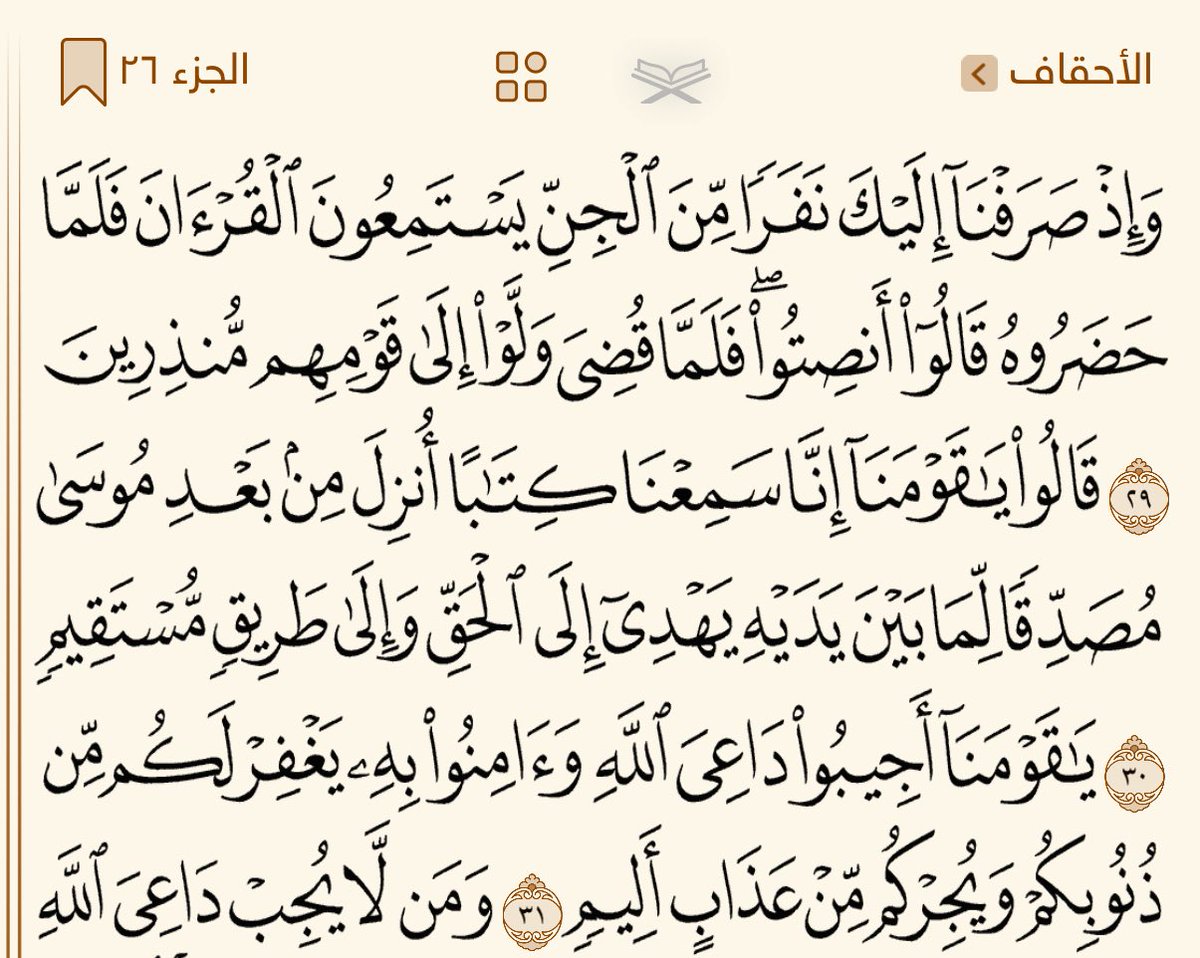 الأحقاف الجزء ٢٦
وَإِذۡ صَرَفۡنَآ إِلَيۡكَ نَفَرٗا مِّنَ ٱلۡجِنِّ يَسۡتَمِعُونَ ٱلۡقُرۡءَانَ فَلَمَّا
حَضَرُوهُ قَالُوٓاْ أَنصِتُواْۖ فَلَمَّا قُضِيَ وَلَّوۡاْ إِلَىٰ قَوۡمِهِم مُّنذِرِينَ
٢٩ قَالُواْ يَٰقَوۡمَنَآ إِنَّا سَمِعۡنَا كِتَٰبًا أُنزِلَ مِنۢ بَعۡدِ مُوسَىٰ
مُصَدِّقٗا لِّمَا بَيۡنَ يَدَيۡهِ يَهۡدِيٓ إِلَى ٱلۡحَقِّ وَإِلَىٰ طَرِيقٖ مُّسۡتَقِيمٖ
٣٠ يَٰقَوۡمَنَآ أَجِيبُواْ دَاعِيَ ٱللَّهِ وَءَامِنُواْ بِهِۦ يَغۡفِرۡ لَكُم مِّن
ذُنُوبِكُمۡ وَيُجِرۡكُم مِّنۡ عَذَابٍ أَلِيمٖ ٣١ وَمَن لَّا يُجِبۡ دَاعِيَ ٱللَّهِ